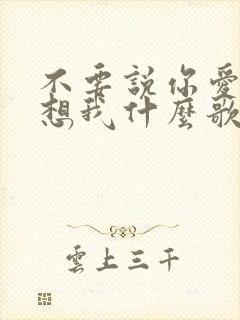 不要説你愛
想我什麼歌
雲上三千